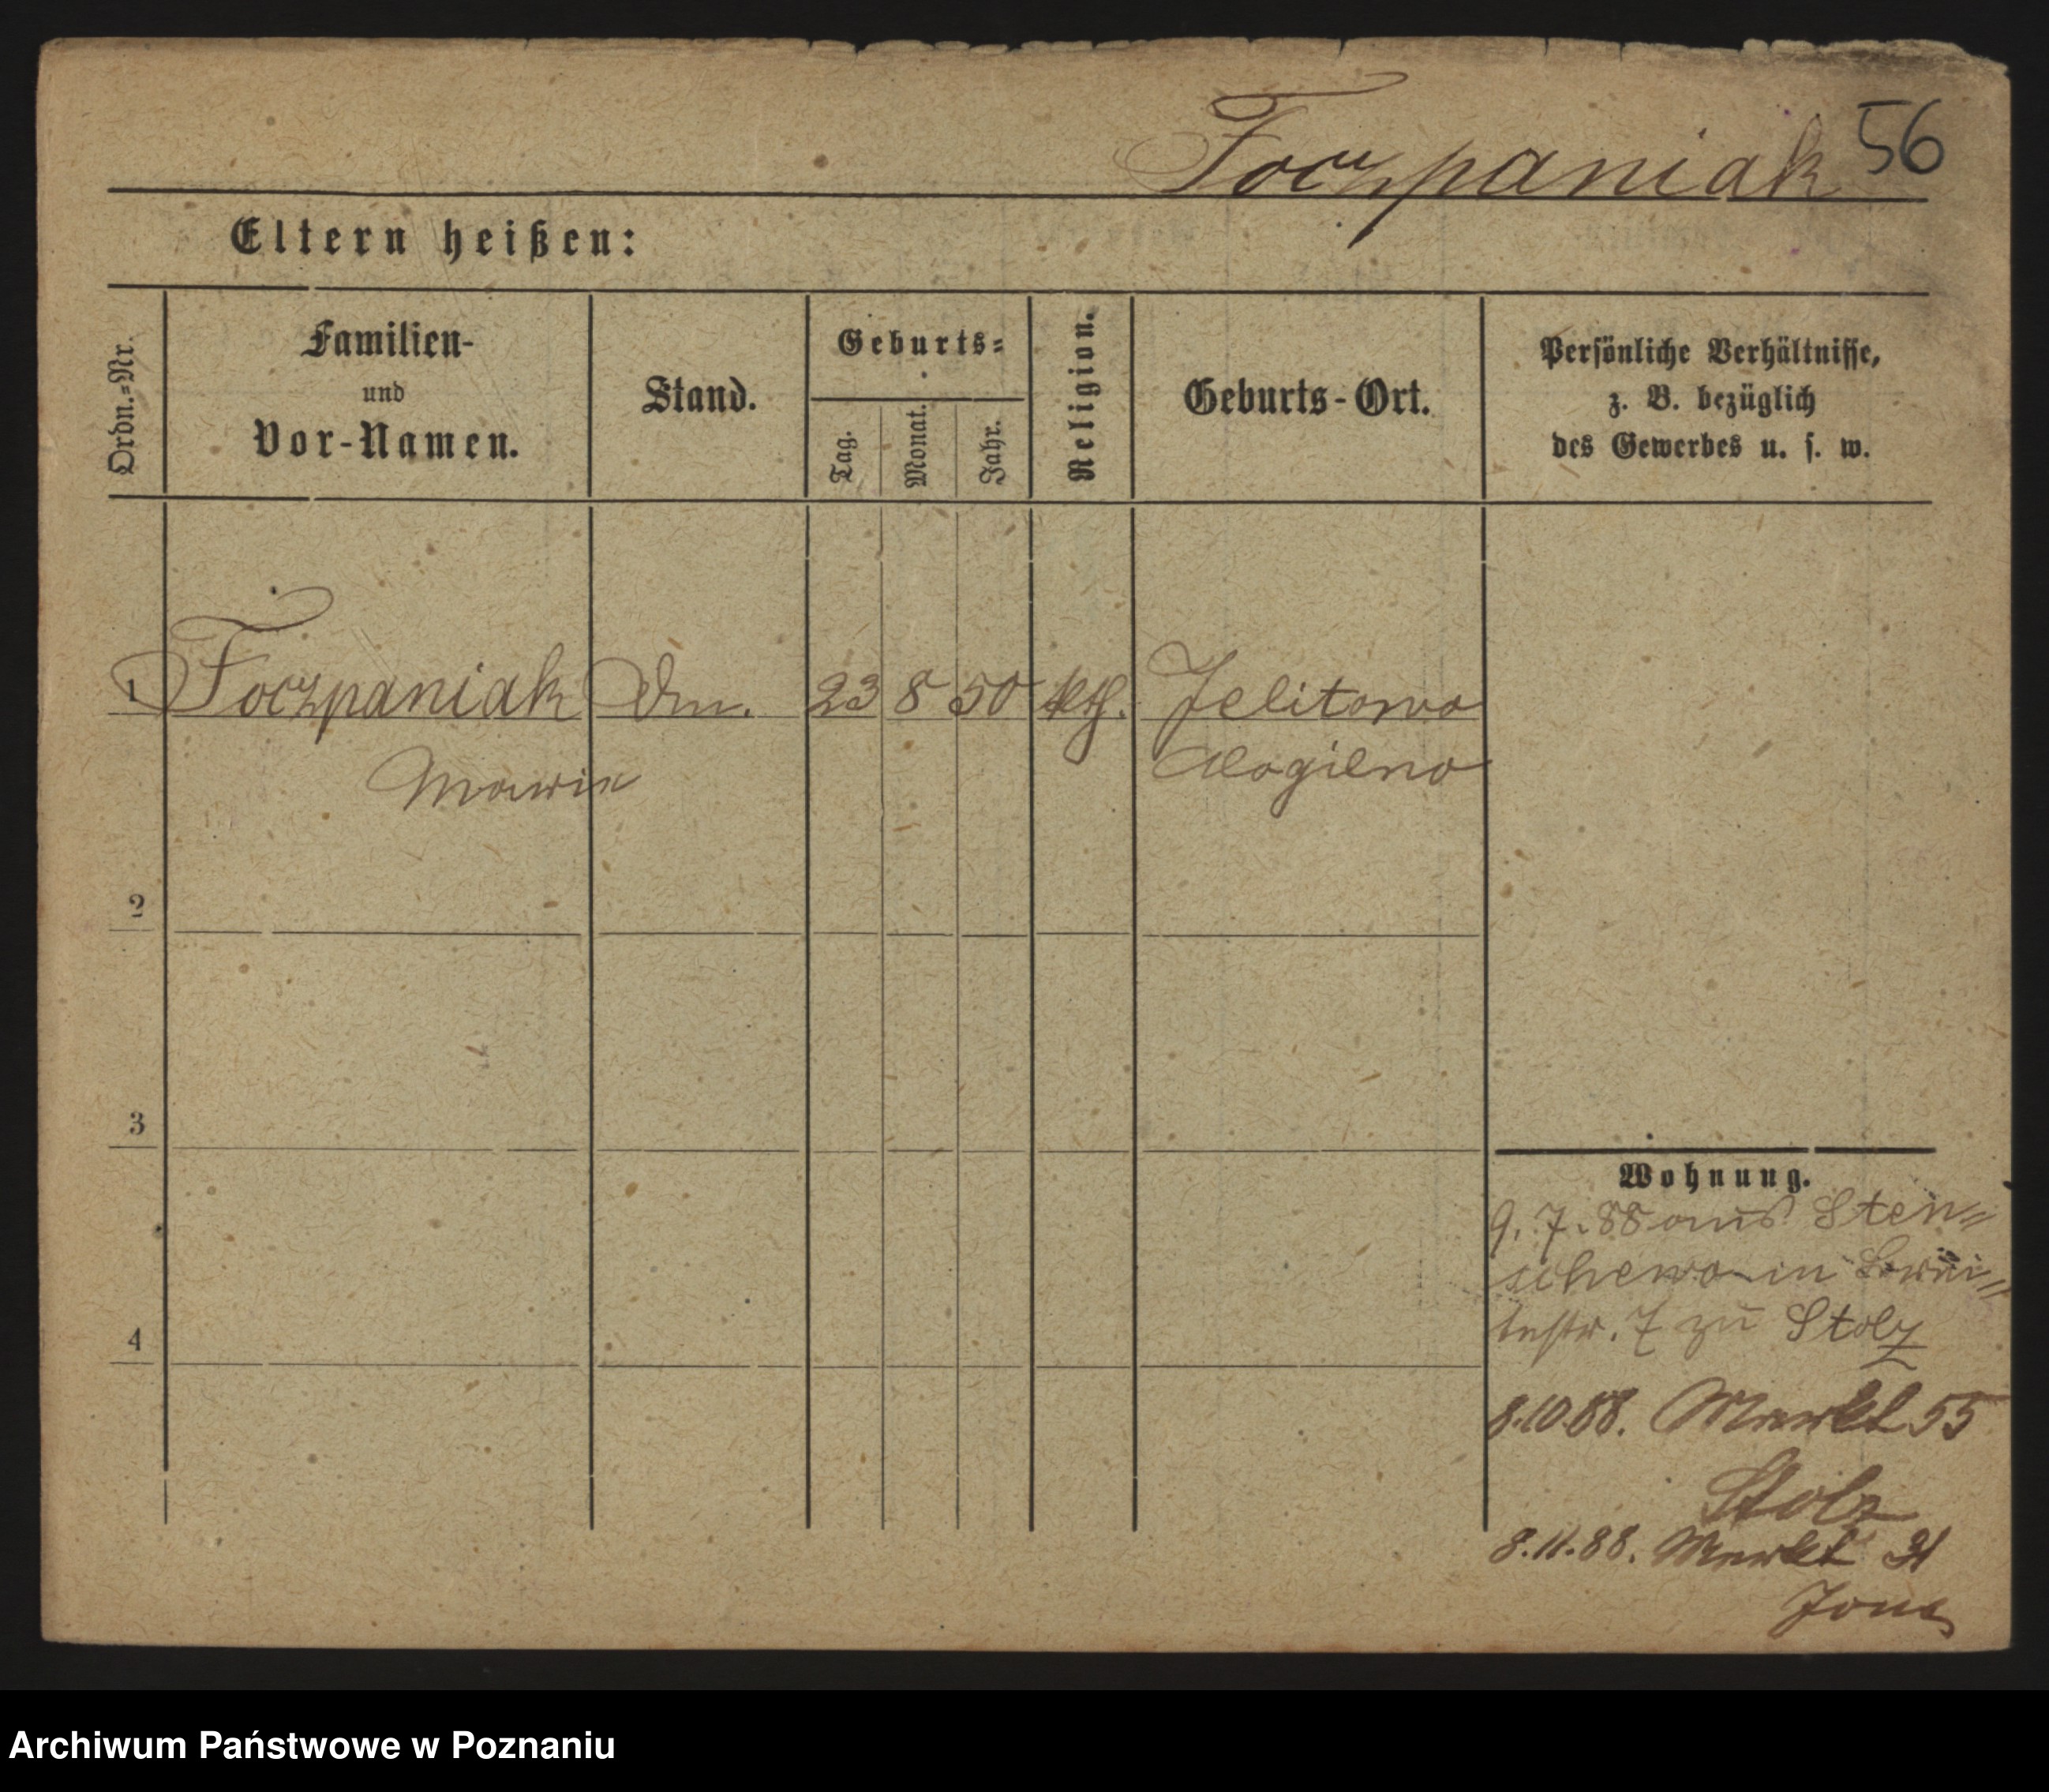 Foczpaniak 56
Eltern heißen:
Ordn.=Nr.
Familien-
und
Vor-Namen.
Stand.
Geburts=
Tag.
Monat.
Jahr.
Religion.
Geburts-Ort.
Persönliche Verhältnisse,
z. B. bezüglich
des Gewerbes u. s. w.
1 Foczpaniak 23 8 50 kth. Jelitowo
Maria Mogilno
2
3
4
Wohnung.
9. 7. 88 aus Sten=
schewo in
7 zu Stolz
8.10.88. Markt 55
Stolz
8.11.88. Markt
Archiwum Państwowe w Poznaniu